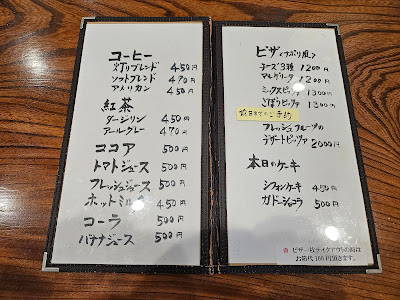 コーヒー
灯りブレンド 450円
ソフトブレンド 470円
アメリカン 450円
紅茶
ダージリン 450円
アールグレー 470円
ココア 500円
トマトジュース 500円
フレッシュジュース 500円
ホットミルク 450円
コーラ 500円
バナナジュース 500円
ピザ(ナポリ風)
チーズ3種 1200円
マルゲリータ 1200円
ミックスピッツァ 1300円
ごぼうピッツァ 1300円
前日までのご予約
フレッシュフルーツの
デザートピッツァ 2000円
本日のケーキ
シフォンケーキ 450円
ガトーショコラ 500円
ピザ一枚テイクアウトの時は
お箱代100円頂きます。